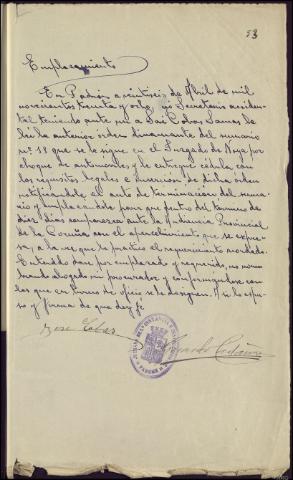 53
Emplazamiento
En Padrón a veintiseis de Abril de mil
novecientos treinta y ocho, yo Secretario acciden-
tal teniendo ante mi a José Cobas James le
leí la anterior orden dimanante del sumario
nº 18 que se le sigue en el Juzgado de Noya por
choque de automóviles y le entregué cédula con
los requisitos legales e inserción de dicha orden
notificándole el auto de terminación del suma-
rio y emplazándole para que dentro del término de
diez días comparezca ante la Audiencia Provincial
de La Coruña con el apercibimiento que se expre-
sa, a la vez que le practico el requerimiento acordado.
Enterado dase por emplazado y requerido, no nom-
brando abogado ni procurador y conformándose con
los que en turno de oficio se le designen. Así lo expu-
so y firma de que doy fé
José Cobas